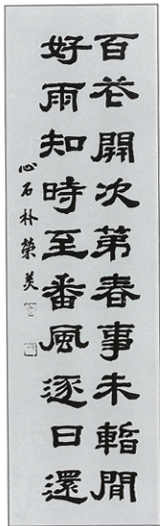 百花開次第春事未暫閒
好雨知時至番風逐日還
心石朴榮美